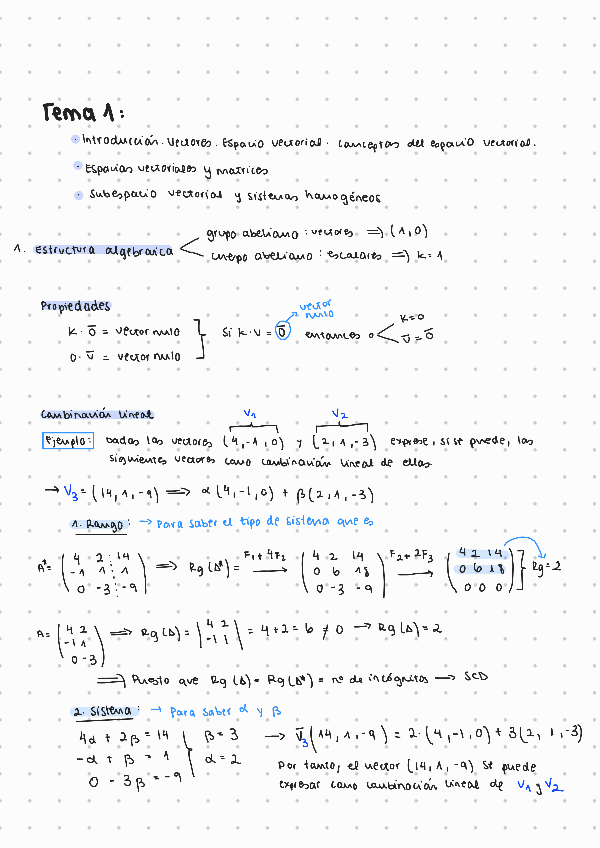 Tema 1:
· Introducción. Vectores. Espacio vectorial. Conceptos del espacio vectorial.
· Espacios vectoriales y matrices
· Subespacio vectorial y sistemas homogéneos
1. Estructura algebraica
grupo abeliano : vectores ⇒ (1,0)
cuerpo abeliano : escalares ⇒ k = 1
Propiedades
vector nulo
k · 0̅ = vector nulo
0 · v̅ = vector nulo
Si k · v = 0̅ entonces o
k=0
v̅ = 0̅
Combinación lineal
V1 V2
Ejemplo: Dados los vectores (4,-1,0) y (2,1,-3) exprese, si se puede, los
siguientes vectores como combinación lineal de ellos.
→ V3 = (14,1,-9) ⇒ α(4,-1,0) + β(2,1,-3)
1. Rango: → Para saber el tipo de sistema que es
A* = (4 2 14
-1 1 1
0 -3 -9) ⇒ Rg(A*) = F1+4F2 → (4 2 14
0 6 18
0 -3 -9) F2+2F3 → (4 2 14
0 6 18
0 0 0) Rg=2
A = (4 2
-1 1
0 -3) ⇒ Rg(A) = |4 2
-1 1| = 4+2 = 6 ≠ 0 → Rg(A) = 2
⇒ Puesto que Rg(A) = Rg(A*) = nº de incógnitas → SCD
2. Sistema: → Para saber α y β
4α + 2β = 14
-α + β = 1
0 - 3β = -9
β = 3
α = 2
→ V̅3 (14,1,-9) = 2·(4,-1,0) + 3(2,1,-3)
Por tanto, el vector (14,1,-9) se puede
expresar como combinación lineal de V1 y V2